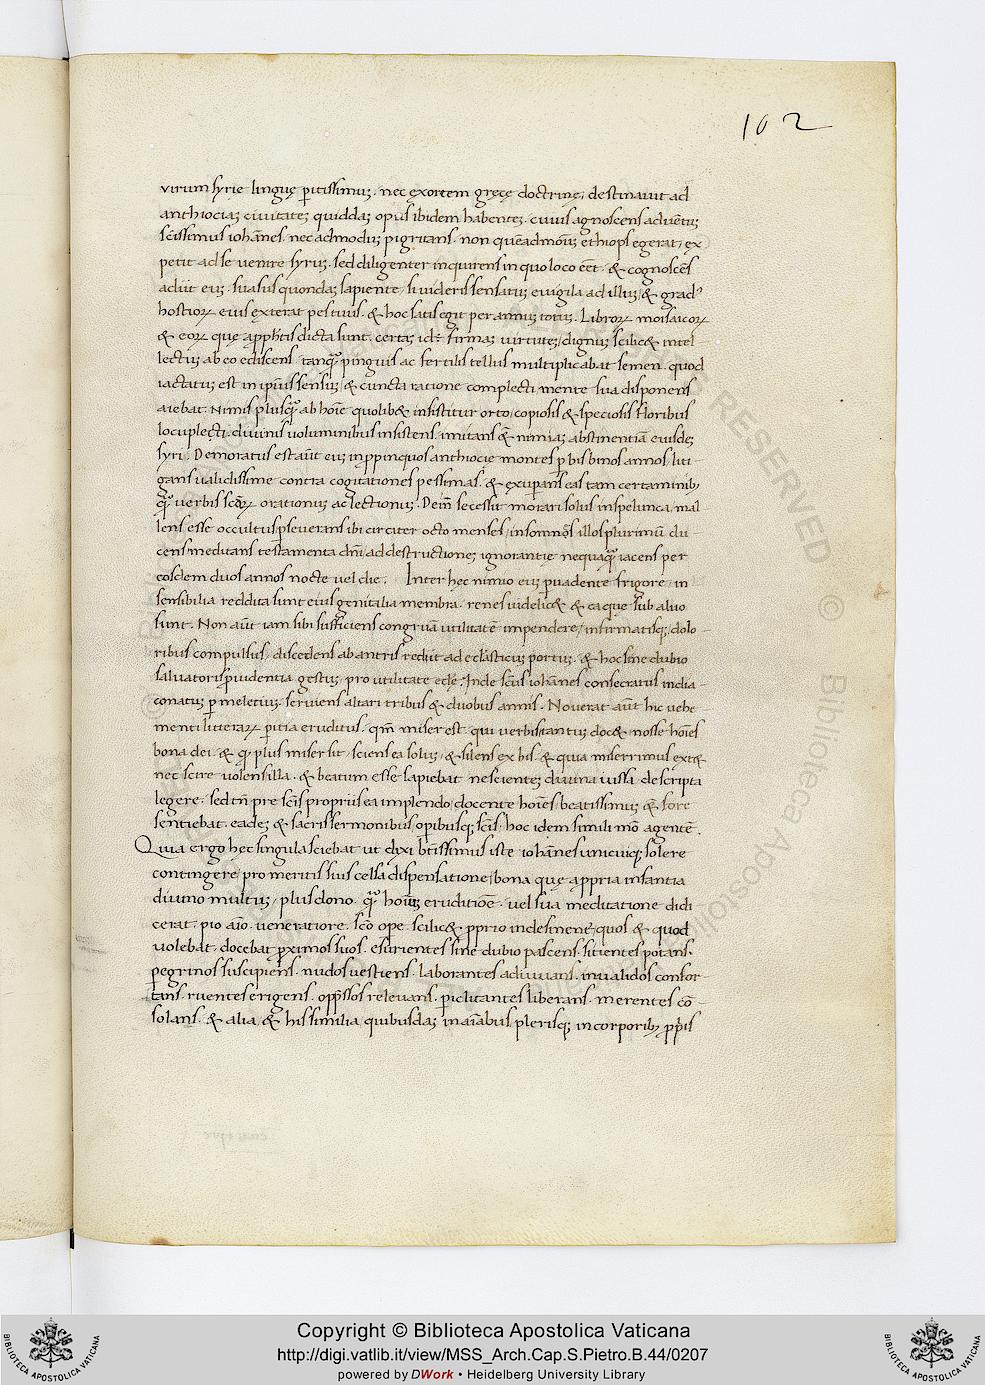 102
virum syrie linguę pitissimū. nec exortem gręcę doctrinę, destinavit ad
anthiociaʒ civitateʒ quiddaʒ opus ibidem habenteʒ. cuius agnoscens adventū
scissimus iohānes. nec admodū pigritans. non quēadmōdū ethiops egerat, ex
petit ad se venire syrus. sed diligenter inquirens in quo loco eēt. & cognoscēs
adiut eūʒ. suasus quondaʒ sapiente, si videris sensatū evigila ad illū, & gradꝰ
hostioꝝ eius exterat pes tuus. & hoc satis egit per annū totū. Librorꝝ moisaicorꝝ
& eoꝝ quę appħtis dicta sunt. certaʒ firmaʒ virtuteʒ, dignus scilic& intel-
lectus ab eo ediscens tanq̄ʒ pinguis ac fertilis tellus multiplicabat semen. quod
iactatū est in ipsius sensū, & cuncta ratione complecti mente sua disponens
aiebat. Nimis plusq̄ʒ ab hoīe quolib& insistitur orto, copiosis & speciosis floribus
locuplecti. divinis voluminibus insistens. imitans & nimiaʒ abstinentiā eiusdeʒ
syri. Demoratus est aūt eūʒ in ppinquos anthiocie montes p bis binos annos, liti
gans validissime contra cogitationes pessimas. & exuperans eas tam certaminibʒ
q̄ʒ verbis scōꝝ orationū ac lectionū. Dein̄ secessit morari solus in spelunca, mal
lens esse occultus, pseverans ibi circiter octo menses, insomnis illos plurimū du
cens meditans testamenta dni, ad destructioneʒ ignorantię nequaq̄ʒ iacens per
eosdem duos annos nocte vel die. Inter hęc nimio eūʒ pvadente frigore, in
sensibilia reddita sunt eius genitalia membra. renes videlic& & ea que sub alvo
sunt. Non aūt iam sibi sufficiens congruā utilitatē impendere, infirmatisqʒ dolo-
ribus compulsus, discedens ab antris rediit ad ecclasticū portū. & hoc sine dubio
salvatoris pvidentia gestū, pro utilitate ecłe. Inde scūs iohānes consecratus in dia-
conatū p meletiū. serviens altari tribus & duobus annis. Noverat aūt hic vehe-
menti litterarꝝ pitia eruditus. qm̄ miser est. qui verbis tantū doc& nosse hoīes
bona dei. & q̄ plus miser sit, sciens ea solus, & silens ex his. & quia miserrimus ext&
nec scire volens illa. & beatum esse sapiebat nescienteʒ divina iussa descripta
legere. sed tn̄ pre scīs propriis ea implendo, docente hoīes, beatissimū & fore
sentiebat. eadeʒ & sacris sermonibus, opibusqʒ scīs, hoc idem simili mō agentē.
Quia ergo hęc singula sciebat ut dixi btissimus iste iohānes unicuiqʒ solere
contingere, pro meritis suis celsa dispensatione, bona quę appria infantia
divino multū, plus dono. q̄ʒ hoīuʒ eruditiōe. vel sua meditatione didi
cerat. pio aīo. veneratiore. scō ope. scilic& pprio indesinenē, quos & quod
volebat, docebat pximos suos. esurientes sine dubio pascens. sitientes potans.
pegrinos suscipiens. nudos vestiens. laborantes adiuvans. invalidos confor-
tans. ruentes erigens. oppssos relevans. piclitantes liberans. merentes cō-
solans. & alia & his similia quibusdaʒ in aīabus, plerisqʒ in corporibʒ ppiis
Copyright © Biblioteca Apostolica Vaticana
http://digi.vatlib.it/view/MSS_Arch.Cap.S.Pietro.B.44/0207
powered by DWork • Heidelberg University Library